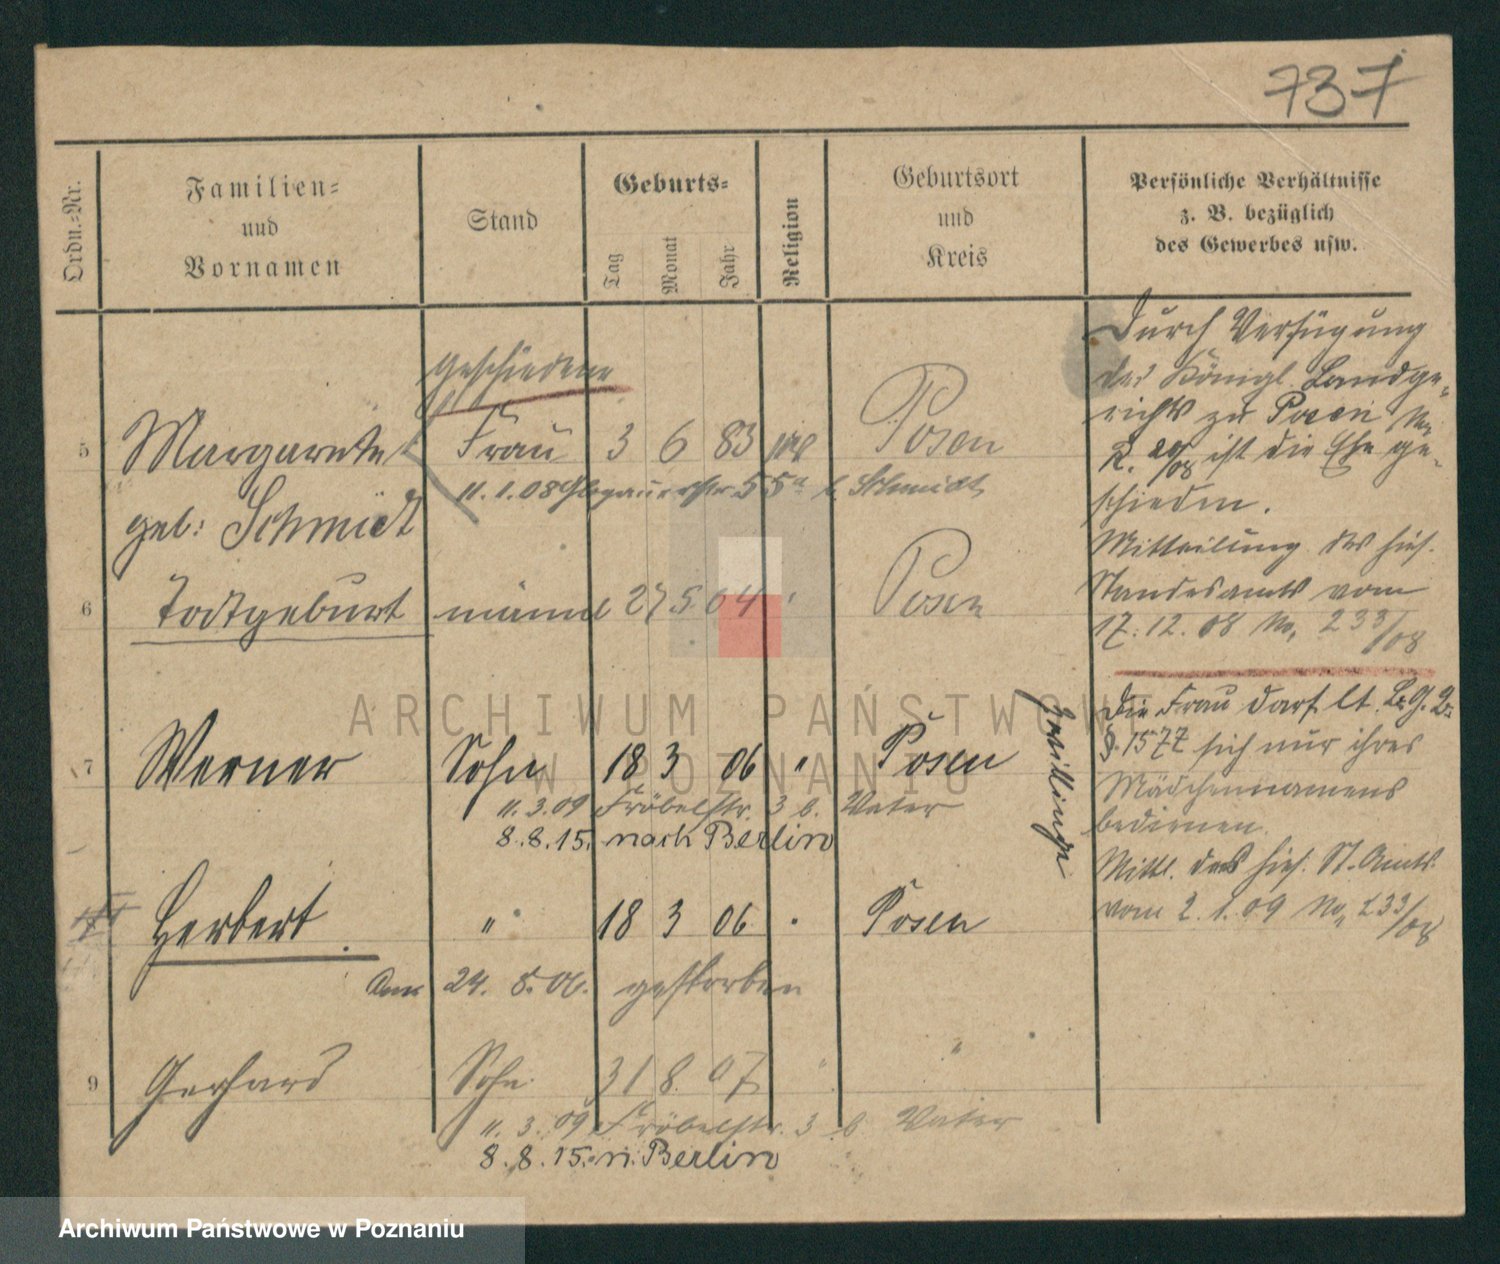 737
Ordn.=Nr.
Familien=
und
Vornamen
Stand
Geburts=
Tag
Monat
Jahr
Religion
Geburtsort
und
Kreis
Persönliche Verhältnisse
z. B. bezüglich
des Gewerbes usw.
geschiedene
5 Margarete Frau 3 6 83 Posen
geb: Schmidt
11.1.08 Glogauerstr. 55a b. Schmidt
6 Todtgeburt männl 27 5. 04 " Posen
7 Werner Sohn 18 3 06 " Posen
11.3.09 Fröbelstr. 3 b. Vater
8.8.15. nach Berlin
Herbert " 18 3 06 " Posen
Zwillinge
am 24. 8. 06. gestorben
9 Gerhard Sohn 31 8. 07 " "
11.3.09 Fröbelstr. 3 b Vater
8.8.15. n. Berlin
Durch Verfügung
des Königl. Landge-
richts zu Posen
R. 20/08 ist die Ehe ge-
schieden.
Mitteilung des hies.
Standesamts vom
17.12.08 No. 233/08
Die Frau darf lt. B.G.B.
§. 1577 sich nur ihres
Mädchennamens
bedienen.
Mittl. des hies. St. Amts.
vom 2.1.09 No. 233/08
ARCHIWUM PAŃSTWOWE
W POZNANIU
Archiwum Państwowe w Poznaniu